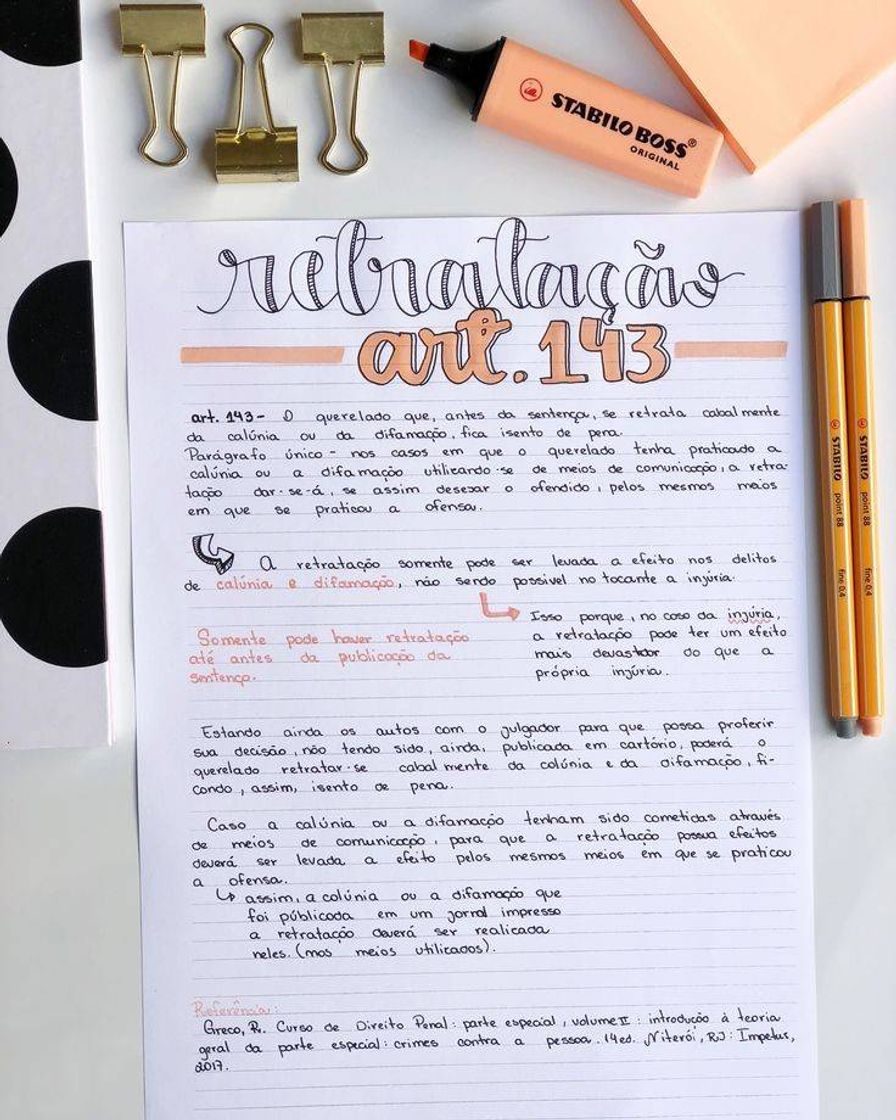 STABILO BOSS®
ORIGINAL
retratação
art. 143
art. 143- O querelado que, antes da sentença, se retrata cabalmente
da calúnia ou da difamação, fica isento de pena.
Parágrafo único - nos casos em que o querelado tenha praticado a
calúnia ou a difamação utilizando-se de meios de comunicação, a retra-
tação dar-se-á, se assim desejar o ofendido, pelos mesmos meios
em que se praticou a ofensa.
A retratação somente pode ser levada a efeito nos delitos
de calúnia e difamação, não sendo possível no tocante a injúria.
Isso porque, no caso da injúria,
a retratação pode ter um efeito
mais devastador do que a
própria injúria.
Somente pode haver retratação
até antes da publicação da
sentença.
Estando ainda os autos com o julgador para que possa proferir
sua decisão, não tendo sido, ainda, publicada em cartório, poderá o
querelado retratar-se cabalmente da calúnia e da difamação, fi-
cando, assim, isento de pena.
Caso a calúnia ou a difamação tenham sido cometidas através
de meios de comunicação, para que a retratação possua efeitos
deverá ser levada a efeito pelos mesmos meios em que se praticou
a ofensa.
assim, a calúnia ou a difamação que
foi públicada em um jornal impresso
a retratação deverá ser realizada
neles. (mos meios utilizados).
Referência:
Greco, R. Curso de Direito Penal: parte especial, volume II: introdução à teoria
geral da parte especial: crimes contra a pessoa. 14ed. Niterói, RJ: Impetus,
2017.
STABILO point 88 fine 0,4
STABILO point 88 fine 0,4